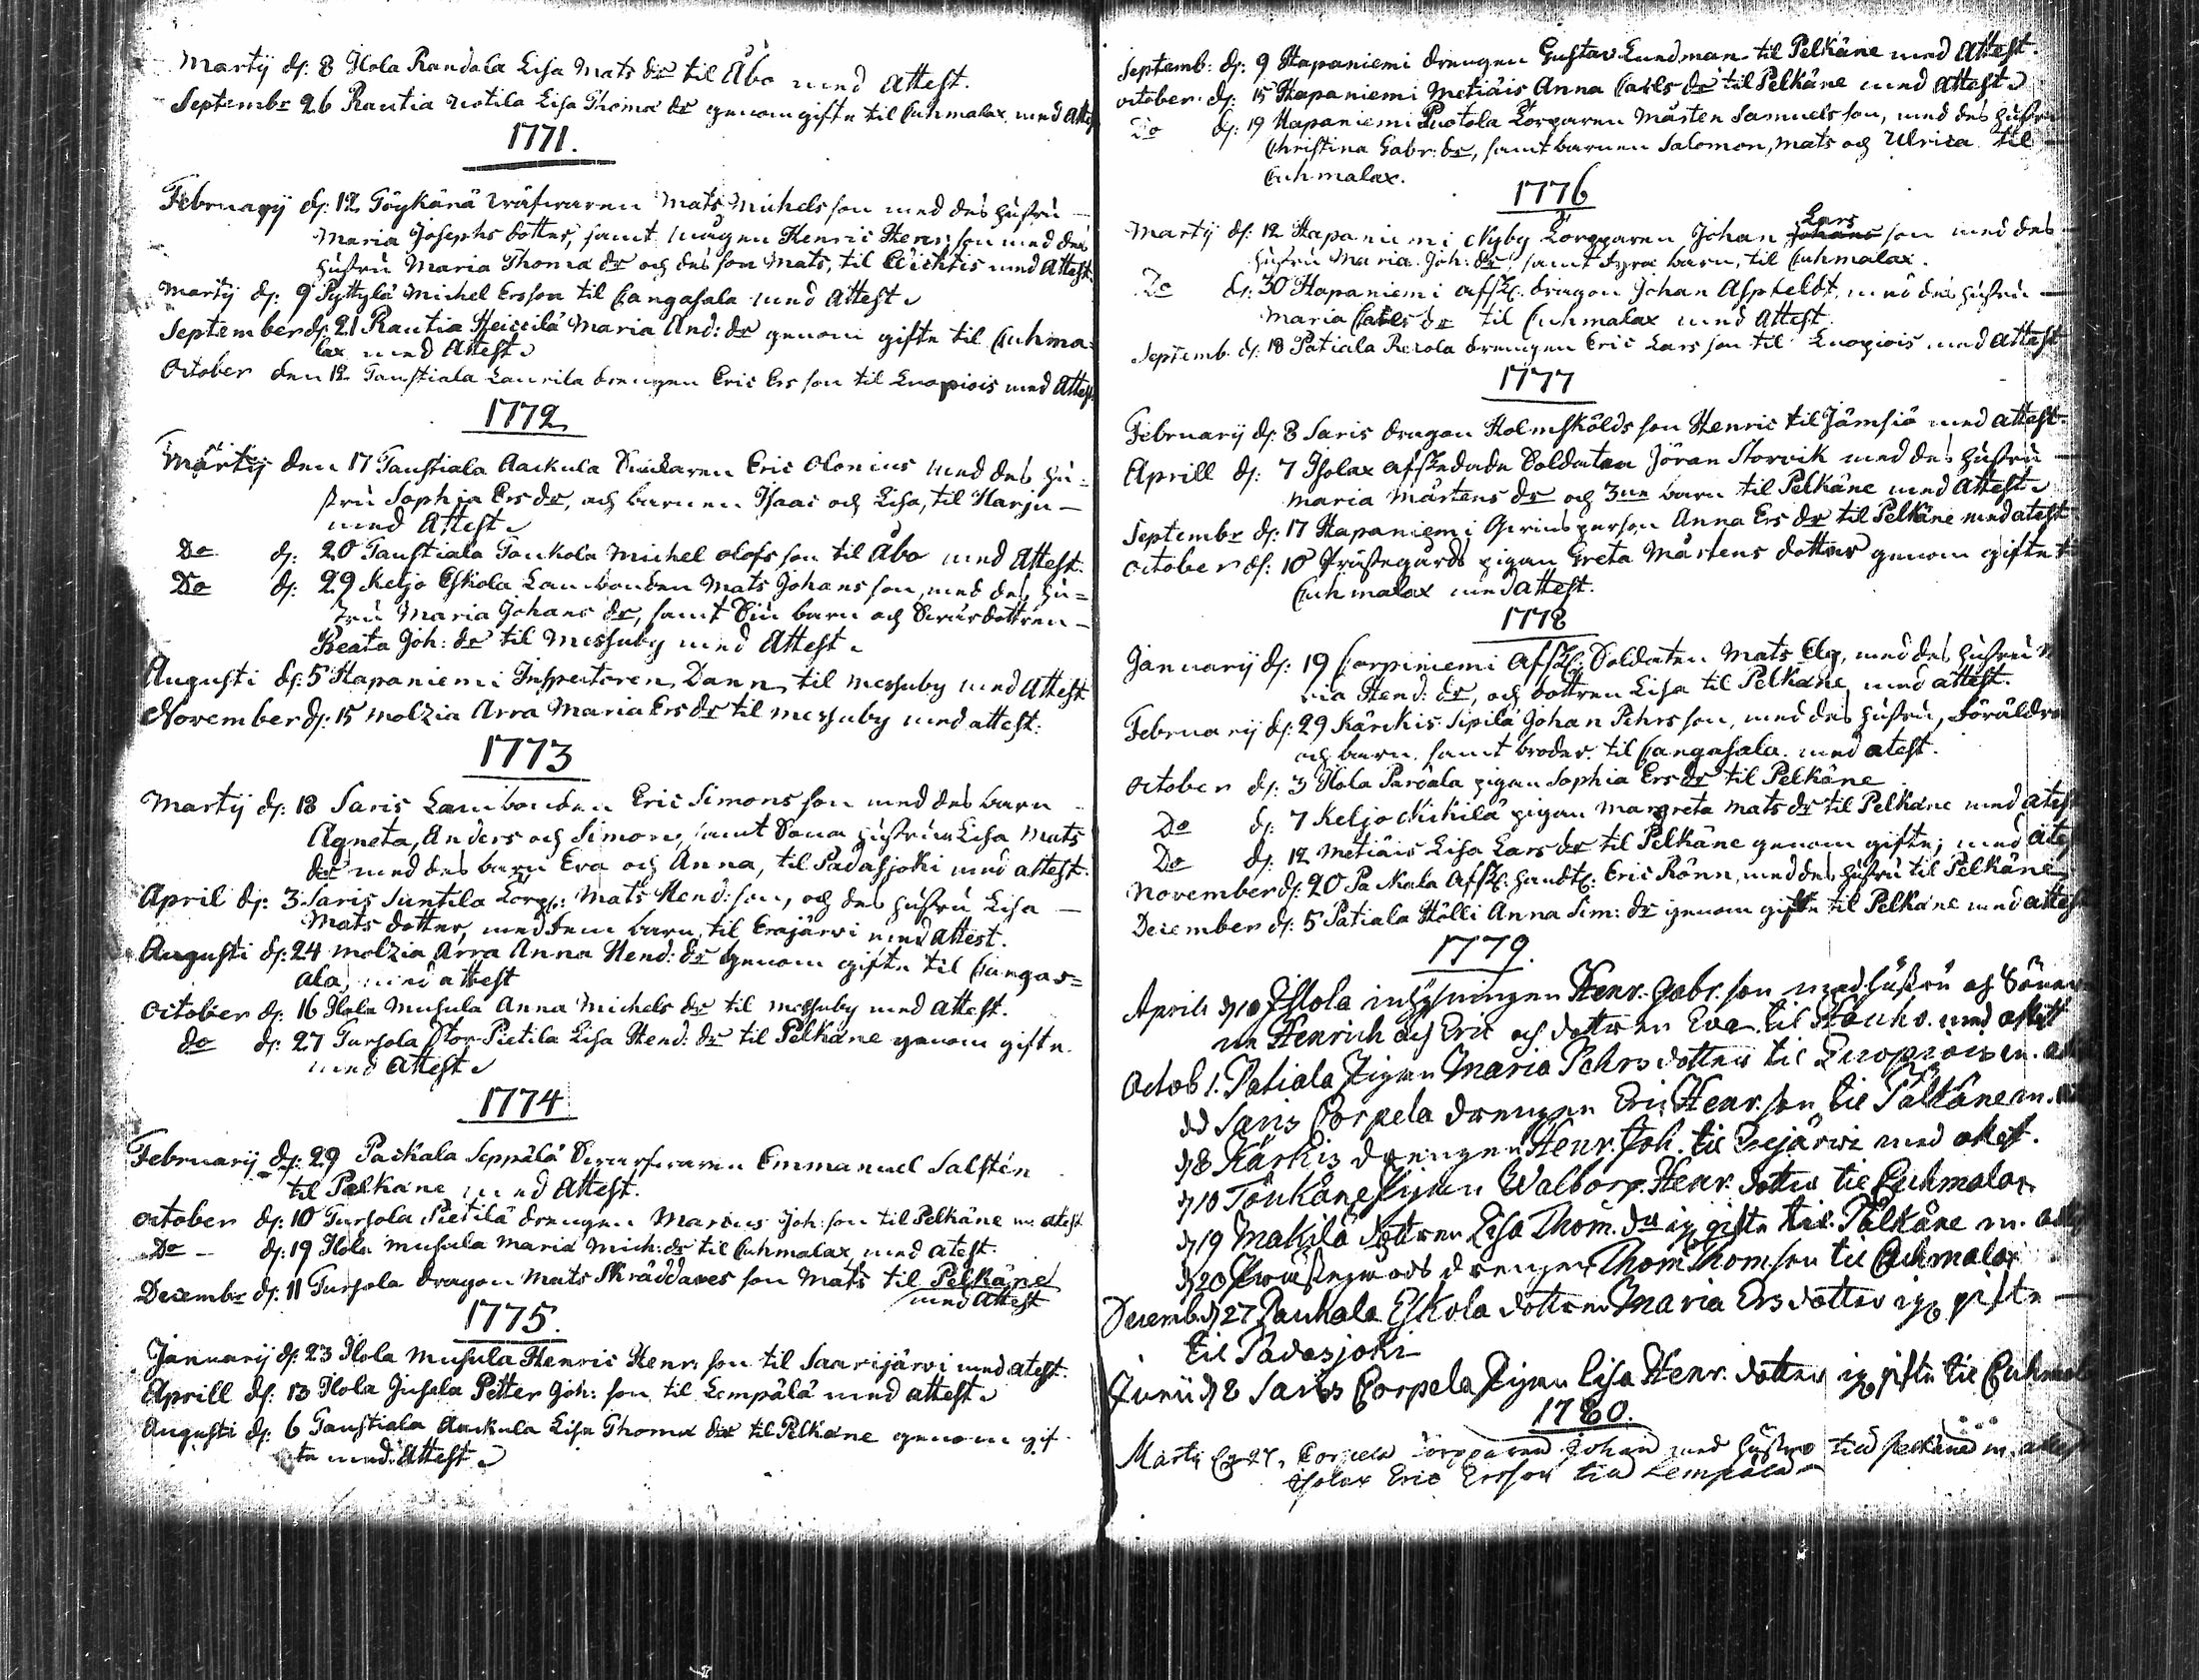 Martij d: 8 Ilola Randala Lisa Mats dr til Åbo med Attest.
Septembr 26 Rautia Uotila Lisa Thomæ dr genom gifte til Cuhmalax med Attest
1771.
February d: 12 Töykänä Mats Michels son med des hustru
Maria Josephs dotter, samt mågen Henric Henr: son med des
hustru Maria Thomæ dr och des son Mats, til Wichtis med Attest
Martij d: 9 Pyttylä Michel Ersson til Cangasala med Attest
September d: 21 Rautia Heickilä Maria And: dr genom gifte til Cuhma-
lax med Attest
October den 12 Taustiala Laurila drengen Eric Ers son til Luopiois med Attest
1772
Martij den 17 Taustiala Aackula Eric Olonius med des hu-
stru Sophia Ers dr, och barnen Isaac och Lisa, til Harju
med Attest
Do d: 20 Taustiala Toukola Michel Olofs son til Åbo med Attest.
Do d: 29 Keljo Eskola Lambonden Mats Johans son, med des hu-
stru Maria Johans dr, samt Siu barn och Svärdottren
Beata Joh: dr til Messuby med Attest
Augusti d: 5 Hapaniemi Inspectoren Dann til Messuby med Attest
November d: 15 Molzia Arra Maria Ers dr til Messuby med attest:
1773
Martij d: 18 Saris Lambonden Eric Simons son med des barn
Agneta, Anders och Simon, samt Sona hustrun Lisa Mats
dr med des barn Eva och Anna, til Padasjoki med attest.
April d: 3 Saris Suntila Torp: Mats Hend: son, och des hustru Lisa
Mats dotter, med fem barn, til Eräjärvi med Attest.
Augusti d: 24 Molzia Arra Anna Hend: dr genom gifte til Cangas-
ala, med attest
October d: 16 Ilola Musula Anna Michels dr til Messuby med Attest.
do d: 27 Tursola Stor-Pietila Lisa Hend: dr til Pelkäne genom gifte
med Attest
1774
February d: 29 Packala Seppälä Emmanuel Salstén
til Pelkäne med Attest.
October d: 10 Tursola Pietilä drengen Marcus Joh: son til Pelkäne m: atest
Do - d: 19 Ilola Musula Maria Mich: dr til Cuhmalax med atest.
Decembr d: 11 Tursola dragon Mats Skräddares son Mats til Pelkäne
med Attest
1775.
January d: 23 Ilola Musula Henric Henr: son til Saarijärvi med atest.
Aprill d: 13 Ilola Jusala Petter Joh: son til Lempälä med attest
Augusti d: 6 Taustiala Aackula Lisa Thomæ dr til Pelkäne genom gif-
te med Attest
Septemb: d: 9 Hapaniemi drengen Gustav Lundman til Pelkäne med Attest.
October d: 15 Hapaniemi Metiäis Anna Carls dr til Pelkäne med Attest
Do d: 19 Hapaniemi Puotola Torparen Mårten Samuels son, med des hustru
Christina Gabr: dr, samt barnen Salomon, Mats och Ulrica til
Cuhmalax.
1776
Martij d: 12 Hapaniemi Nyby Torpparen Johan Johans Lars son med des
hustru Maria Joh: dr, samt fyra barn, til Cuhmalax.
Do d: 30 Hapaniemi afsk: dragon Johan Aspfeldt, med des hustru
Maria Carls dr til Cuhmalax med Attest.
Septemb d: 18 Patiala Rekola drengen Eric Lars son til Luopiois med Attest
1777
February d: 8 Saris dragon Holmskölds son Henric til Jämsiö med attest
Aprill d: 7 Isolax afskedade Soldaten Jöran Storvik med des hustru
Maria Mårtens dr och 3ne barn til Pelkäne med Attest
Septembr d: 17 Hapaniemi Anna Ers dr til Pelkäne med atest
October d: 10 Prästegårds pigan Greta Mårtens dotter genom gifte t
Cuhmalax med Attest.
1778
January d: 19 Corpiniemi Afsk: Soldaten Mats Elg, med des hustru M
ria Hend: dr, och dottren Lisa til Pelkäne, med attest.
February d: 29 Kärckis Sipilä Johan Pehrs son, med des hustru, föräldr
och barn, samt broder til Cangasala med atest.
October d: 3 Ilola Parcala pigan Sophia Ers dr til Pelkäne
Do d: 7 Keljo Nickilä pigan Margreta Mats dr til Pelkäne med atest
Do d: 12 Metiäis Lisa Lars dr til Pelkäne genom gifte; med ätest
November d: 20 Packala Afsk: Eric Rönn, med des hustru til Pelkäne
December d: 5 Patiala Hölli Anna Sim: dr genom gifte til Pelkäne med attest
1779.
April d 10 Ilola inhysningen Henr. Gabr. son med hustru och Söner
ne Henrich och Eric och dottren Eva til Hauho med
Octob 1. Patiala Pigan Maria Pehrs dotter til Luopiois m.
dd Saris Corpela drengen Eric Henr. son til Pälkäne m.
d 8 Kärkis drengen Henr. Joh. til med atest.
d 10 Toukane Pigan Walborg Henr. dotter til Cuhmalax
d 19 Makilä dottren Lisa Thom. dr gifte til Pälkäne m.
d 20 Prästegårds drengen Thom Thomson til Cuhmalax
Decemb d 27 Pauhala Eskola dottren Maria Ers dotter gifte
til Padasjoki
Junii d 2 Saris Corpela Pigan Lisa Henr. dotter gifte til Cuhmal
1780.
Martij 27, Corpela Torpparen Johan med hustru till m.
Isolax Eric Ersson till Lempälä